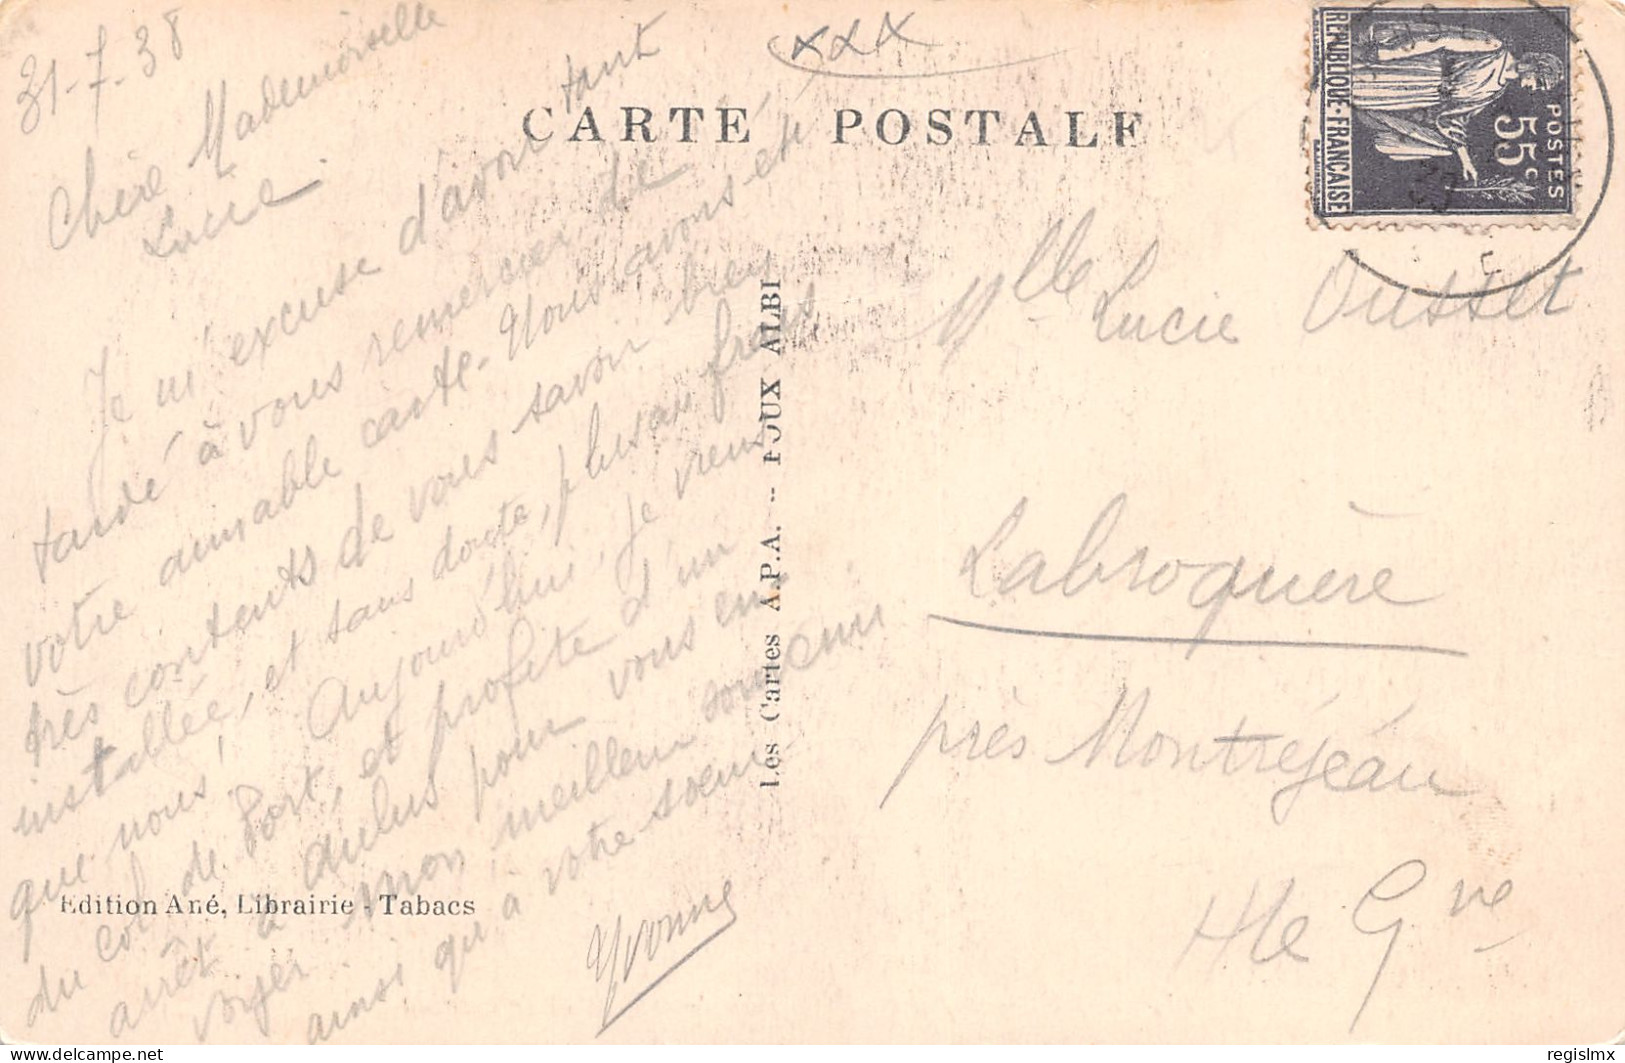 31-7-38
Chère Mademoiselle
Lucie
Je m'excuse d'avoir tant
tardé à vous remercier de
votre aimable carte - Nous avons été
très contents de vous savoir bien
installée, et sans doute, plus au frais
que nous! Aujourd'hui, je viens
du col de Port, et profite d'un
arrêt à Aulus pour vous en-
voyer mon meilleur souvenir
ainsi qu'à votre soeur
Yvonne
xxx
CARTE POSTALE
Edition Ané, Librairie - Tabacs
Les Cartes A.P.A. -- POUX ALBI
REPUBLIQUE·FRANÇAISE
55c
POSTES
Mlle Lucie Ousset
Labroquère
près Montréjeau
Hte Gne
delcampe.net
regislmx